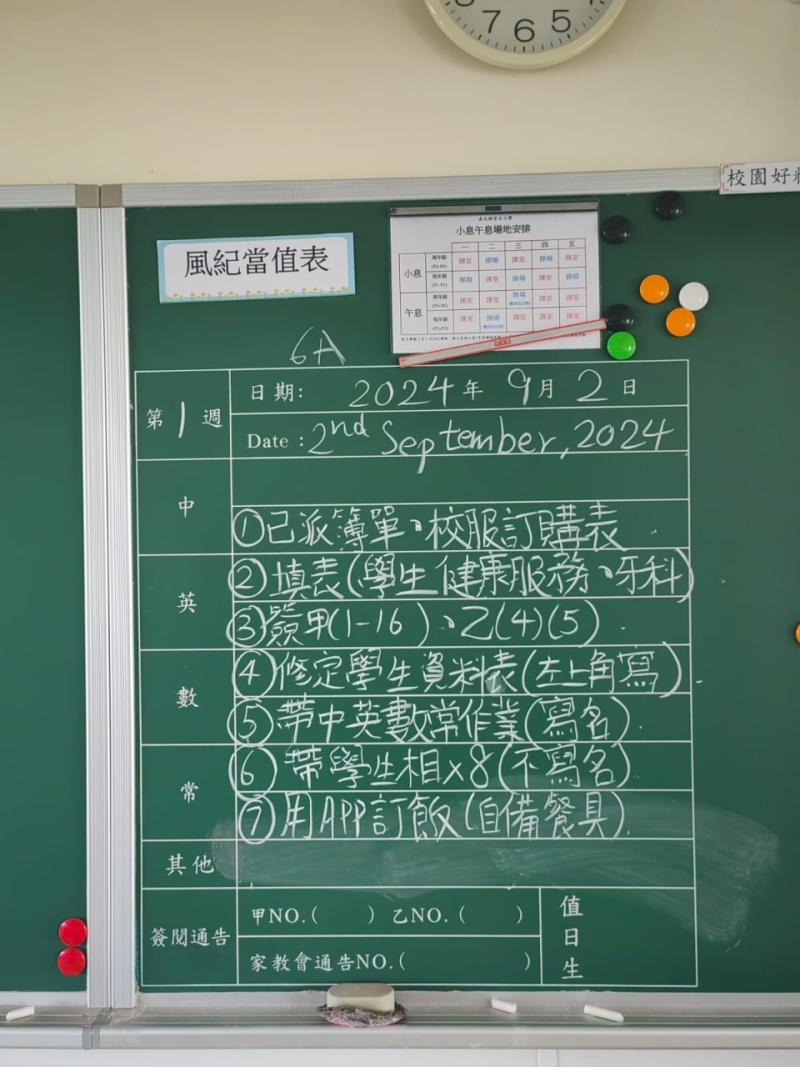 7 6 5
校園好
風紀當值表
小息午息場地安排
一 二 三 四 五
小息
高年級 課室 操場 課室 操場 課室
低年級 操場 課室 操場 課室 操場
午息
高年級 課室 課室 操場 課室 課室
低年級 課室 操場 課室 課室 課室
6A
第1週
日期: 2024年9月2日
Date : 2nd September, 2024
中
①已派簿單、校服訂購表
英
②填表(學生健康服務、牙科)
③簽甲(1-16)、乙(4)(5)
數
④修定學生資料表(左上角寫)
⑤帶中英數常作業(寫名)
常
⑥帶學生相x8(不寫名)
⑦用APP訂飯(自備餐具)
其他
簽閱通告
甲NO.( ) 乙NO.( )
家教會通告NO.( )
值日生